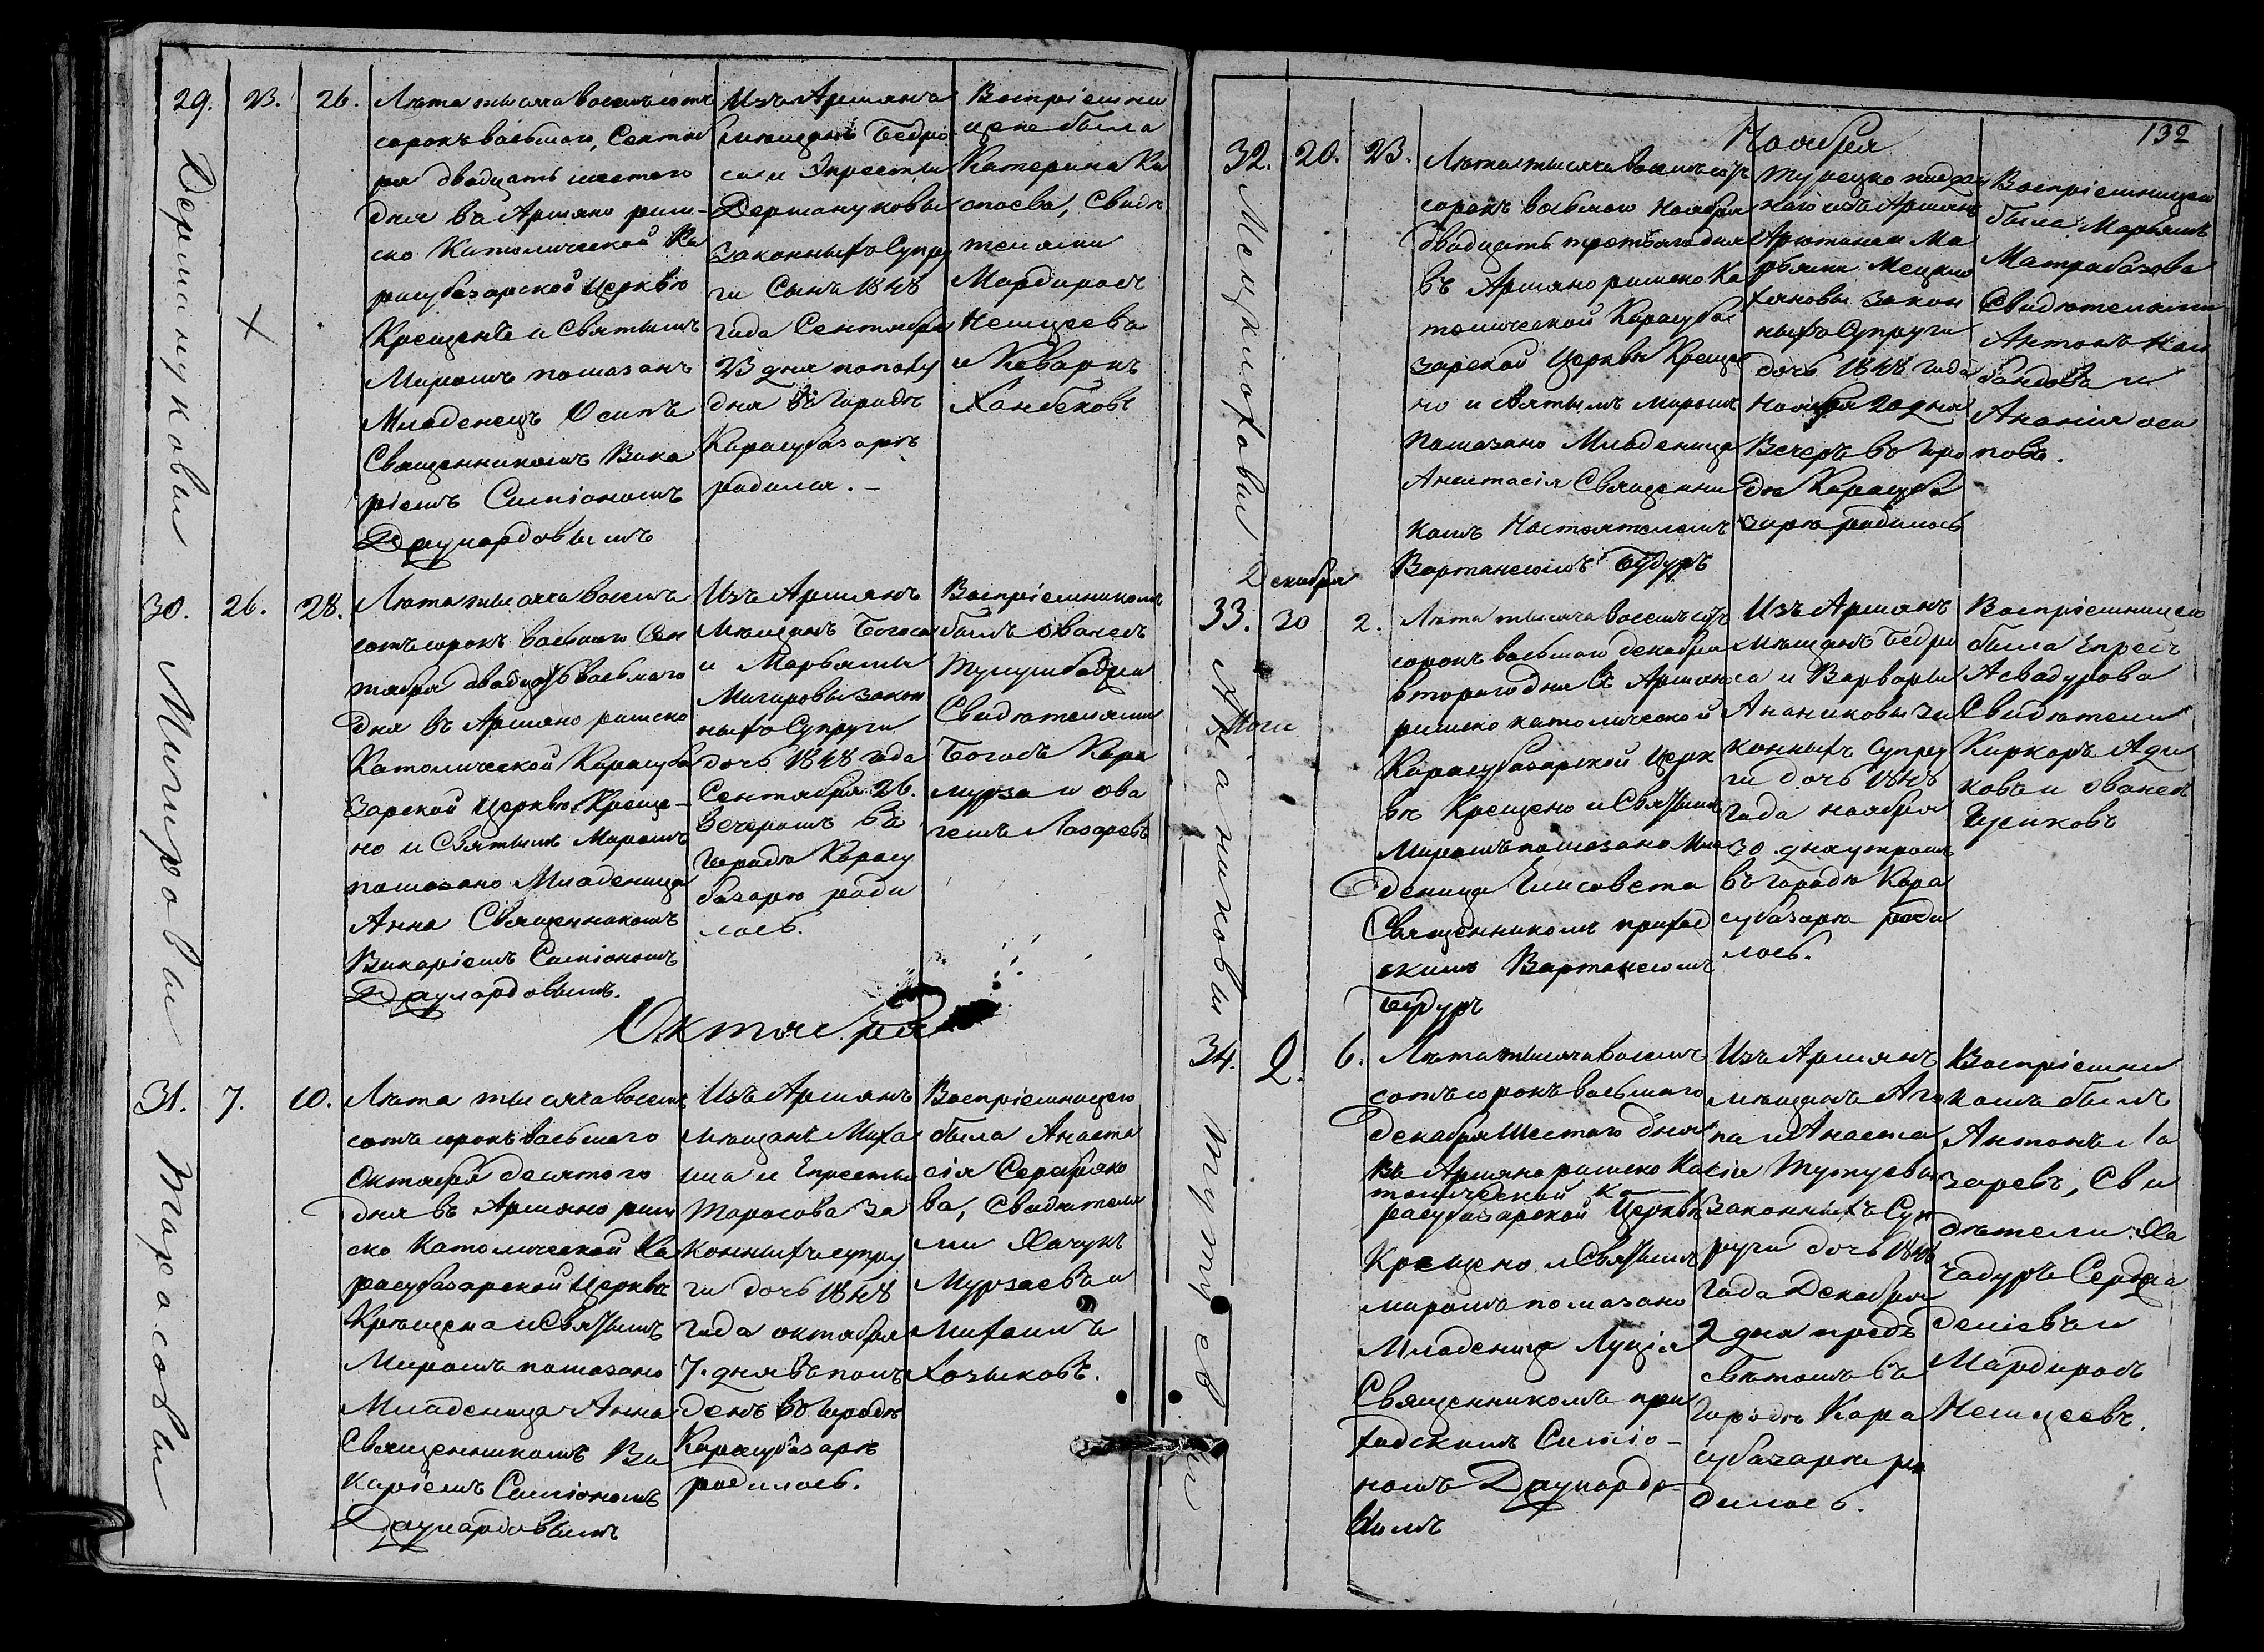 29.
23.
26.
Дермануковы
Лѣта тысяча восемь сотъ
сорокъ восьмаго, Сентяб
ря двадцать шестого
дня въ Армяно рим-
ско Католической Ка
расубазарской Церквѣ
Крещенъ и Святымъ
Миромъ помазанъ
Младенецъ Осипъ
Священникомъ Вика
ріемъ Симіономъ
Из Армянъ
мѣщанъ Бедро
са и Эпрестіи
Дермануковы
Законныхъ Супру
ги Сынъ 1848
года Сентября
23 дня пополу
дня въ Городѣ
Карасубазарѣ
родился. –
Воспріемни
цею была
Катерина
Свидѣ
телями
Мардиросъ
Немцевъ
и Кеваркъ
Ханбековъ
30.
26.
28.
Мигировы
Лѣта тысяча восемь
сотъ сорокъ восьмаго Сен
тября двадцать восьмаго
дня въ Армяно римско
Католической Карасуба
зарской Церквѣ Креще-
но и Святымъ Миромъ
помазано Младеница
Анна Священникомъ
Викаріемъ Симіономъ
Изъ Армянъ
Мѣщанъ Богоса
и Марьямы
Мигировы закон
ныхъ Супруги
дочь 1848 года
Сентября 26.
Вечеромъ въ
Городѣ Карасу
базарѣ роди
лось.
Воспріемникомъ
былъ Ованесъ
Свидѣтелями
Богосъ Кара
мурза и Ова
несъ Лазаревъ
Октября
31.
7.
10.
Тарасовы
Лѣта тысяча восемь
сотъ сорокъ восьмаго
Октября десятого
дня въ Армяно рим
ско Католической Ка
расубазарской Церквѣ
Крещена и Святымъ
Миромъ помазано
Младеница Анна
Священникомъ Ви
каріемъ Симіономъ
Изъ Армянъ
мѣщанъ Миха
ила и Епрестіи
Тарасова За
конныхъ супру
ги дочь 1848
года октября
7. дня въ пол
денъ въ Городѣ
Карасубазарѣ
родилось.
Воспріемницею
была Анаста
сія Серебряко
ва, Свидѣтеля
ми Хачукъ
Мурзаевъ и
Михаилъ
Хозыковъ.
132
Ноября
32.
20.
23.
Лѣта тысяча восемь сотъ
сорокъ восьмаго Ноября
двадцать третьяго дня
въ Армяно римско Ка
толической Карасуба
зарской Церквѣ Креще
но и Святымъ миромъ
Помазано Младеница
Анастасія Священни
комъ Настоятелемъ
Вартанесомъ Будуръ
Турецко поддан
Арютина и Ма
рьями
Закон
ныхъ Супруги
дочь 1848 года
Ноября 20 дня
Вечеръ въ Горо
дѣ Карасуба
зарѣ родилось
Воспріемницею
была Марьямъ
Матрабазова
Свидѣтелями
Антонъ
и
Ананія Оси
повъ.
Декабря
33.
30
2.
Ананиковы
Лѣта тысяча восемь сотъ
сорокъ восьмаго декабря
второго дня въ Армяно
римско католической
Карасубазарской Церк
вѣ Крещено и Святымъ
Миромъ помазано Мла
деница Елисавета
Священникомъ приход
скимъ Вартанесомъ
Будуръ
Изъ Армянъ
мѣщанъ Бедро
са и Варвары
Ананиковы за
конныхъ Супру
ги дочь 1848
года ноября
30. дня утромъ
въ городѣ Кара
субазарѣ роди
лось.
Воспріемницею
была Епресъ
Асвадурова
Свидѣтели
Киркоръ
и Ованесъ
34.
2.
6.
Тутуевы
Лѣта тысяча восемь
сотъ сорокъ восьмаго
Декабря Шестого дня
въ Армяно римско Ка
толической Ка
расубазарской Церквѣ
Крещено и Святымъ
миромъ помазано
Младеница Луція
Священникомъ при
ходскимъ Симіо-
номъ
Изъ Армянъ
мѣщанъ Аго
па и Анаста
сіи Тутуевы
Законныхъ Суп
руги дочь 1848
года Декабря
2 дня предъ
свѣтомъ въ
Городѣ Кара
субазарѣ ро
дилось.
Воспріемни
комъ былъ
Антонъ Ла
заревъ, Сви
дѣтели: Ха
чадуръ
и
Мардиросъ
Немцевъ.